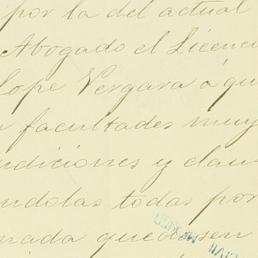 por la del actual
Abogado el Licenc
Lope Vergara á qu
facultades muy
ndiciones y clau
ndolas todas por
nada quedasen